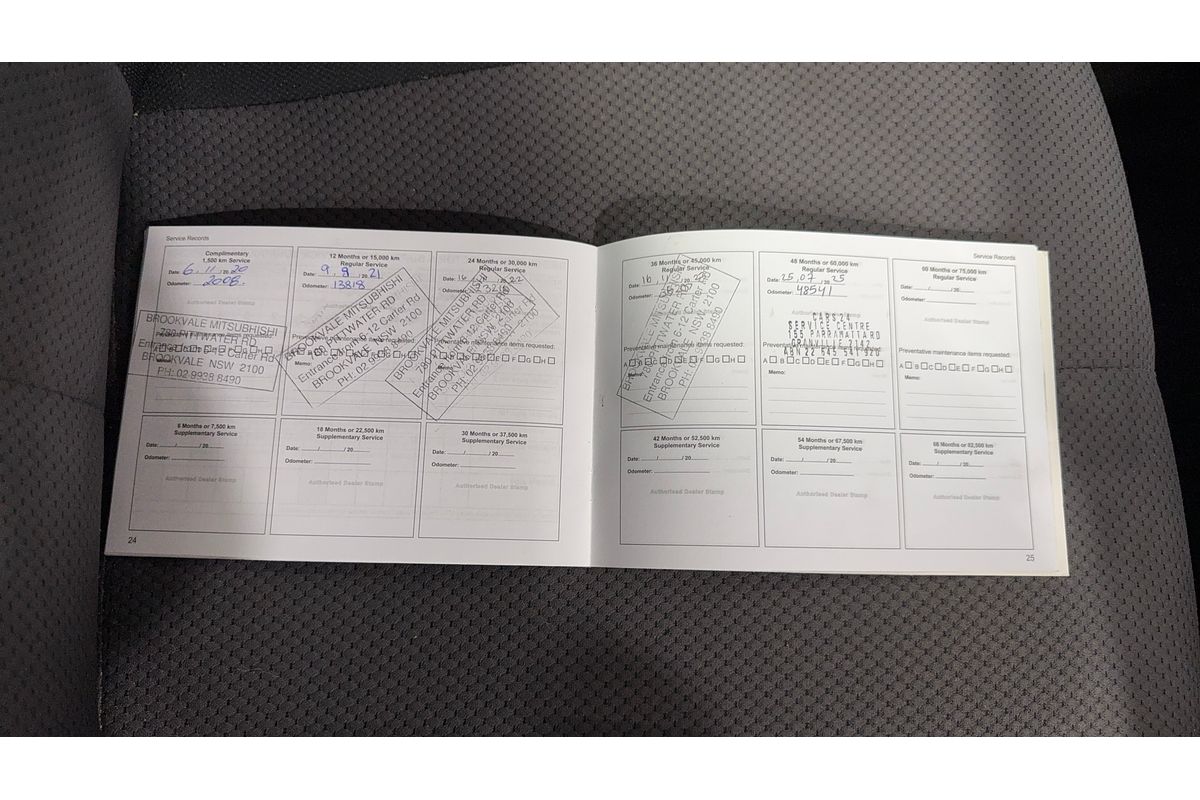 Service Records
Complimentary
1,500 km Service
Date: 6 . 11 / 20 20
Odometer: 2006.
Authorised Dealer Stamp
BROOKVALE MITSUBHISHI
780 PITTWATER RD
Entrance 6-12 Carter Rd
BROOKVALE NSW 2100
PH: 02 9938 8490
12 Months or 15,000 km
Regular Service
Date: 9 . 9 / 20 21
Odometer: 13818
BROOKVALE MITSUBHISHI
780 PITTWATER RD
Entrance 6-12 Carter Rd
BROOKVALE NSW 2100
PH: 02
24 Months or 30,000 km
Regular Service
Date: 16
Odometer:
BROOKVALE MITSUBHISHI
780 PITTWATER RD
Entrance 6-12 Carter Rd
BROOKVALE NSW 2100
PH: 02
6 Months or 7,500 km
Supplementary Service
Date: / / 20
Odometer:
18 Months or 22,500 km
Supplementary Service
Date: / / 20
Odometer:
Authorised Dealer Stamp
30 Months or 37,500 km
Supplementary Service
Date: / / 20
Odometer:
Authorised Dealer Stamp
24
Service Records
36 Months or 45,000 km
Regular Service
Date: 16
Odometer:
6-12 Carter Rd
BROOKVALE NSW 2100
PH: 02 9938 8490
Memo:
48 Months or 60,000 km
Regular Service
Date: 25 . 07 / 20 25
Odometer: 48541
CARS 24
SERVICE CENTRE
155 PARRAMATTA RD
GRANVILLE 2142
ABN 22 645 541 920
Preventative maintenance items requested:
A B C D E F G H
Memo:
60 Months or 75,000 km
Regular Service
Date: / / 20
Odometer:
Authorised Dealer Stamp
Preventative maintenance items requested:
A B C D E F G H
Memo:
42 Months or 52,500 km
Supplementary Service
Date: / / 20
Odometer:
Authorised Dealer Stamp
54 Months or 67,500 km
Supplementary Service
Date: / / 20
Odometer:
Authorised Dealer Stamp
66 Months or 82,500 km
Supplementary Service
Date: / / 20
Odometer:
Authorised Dealer Stamp
25